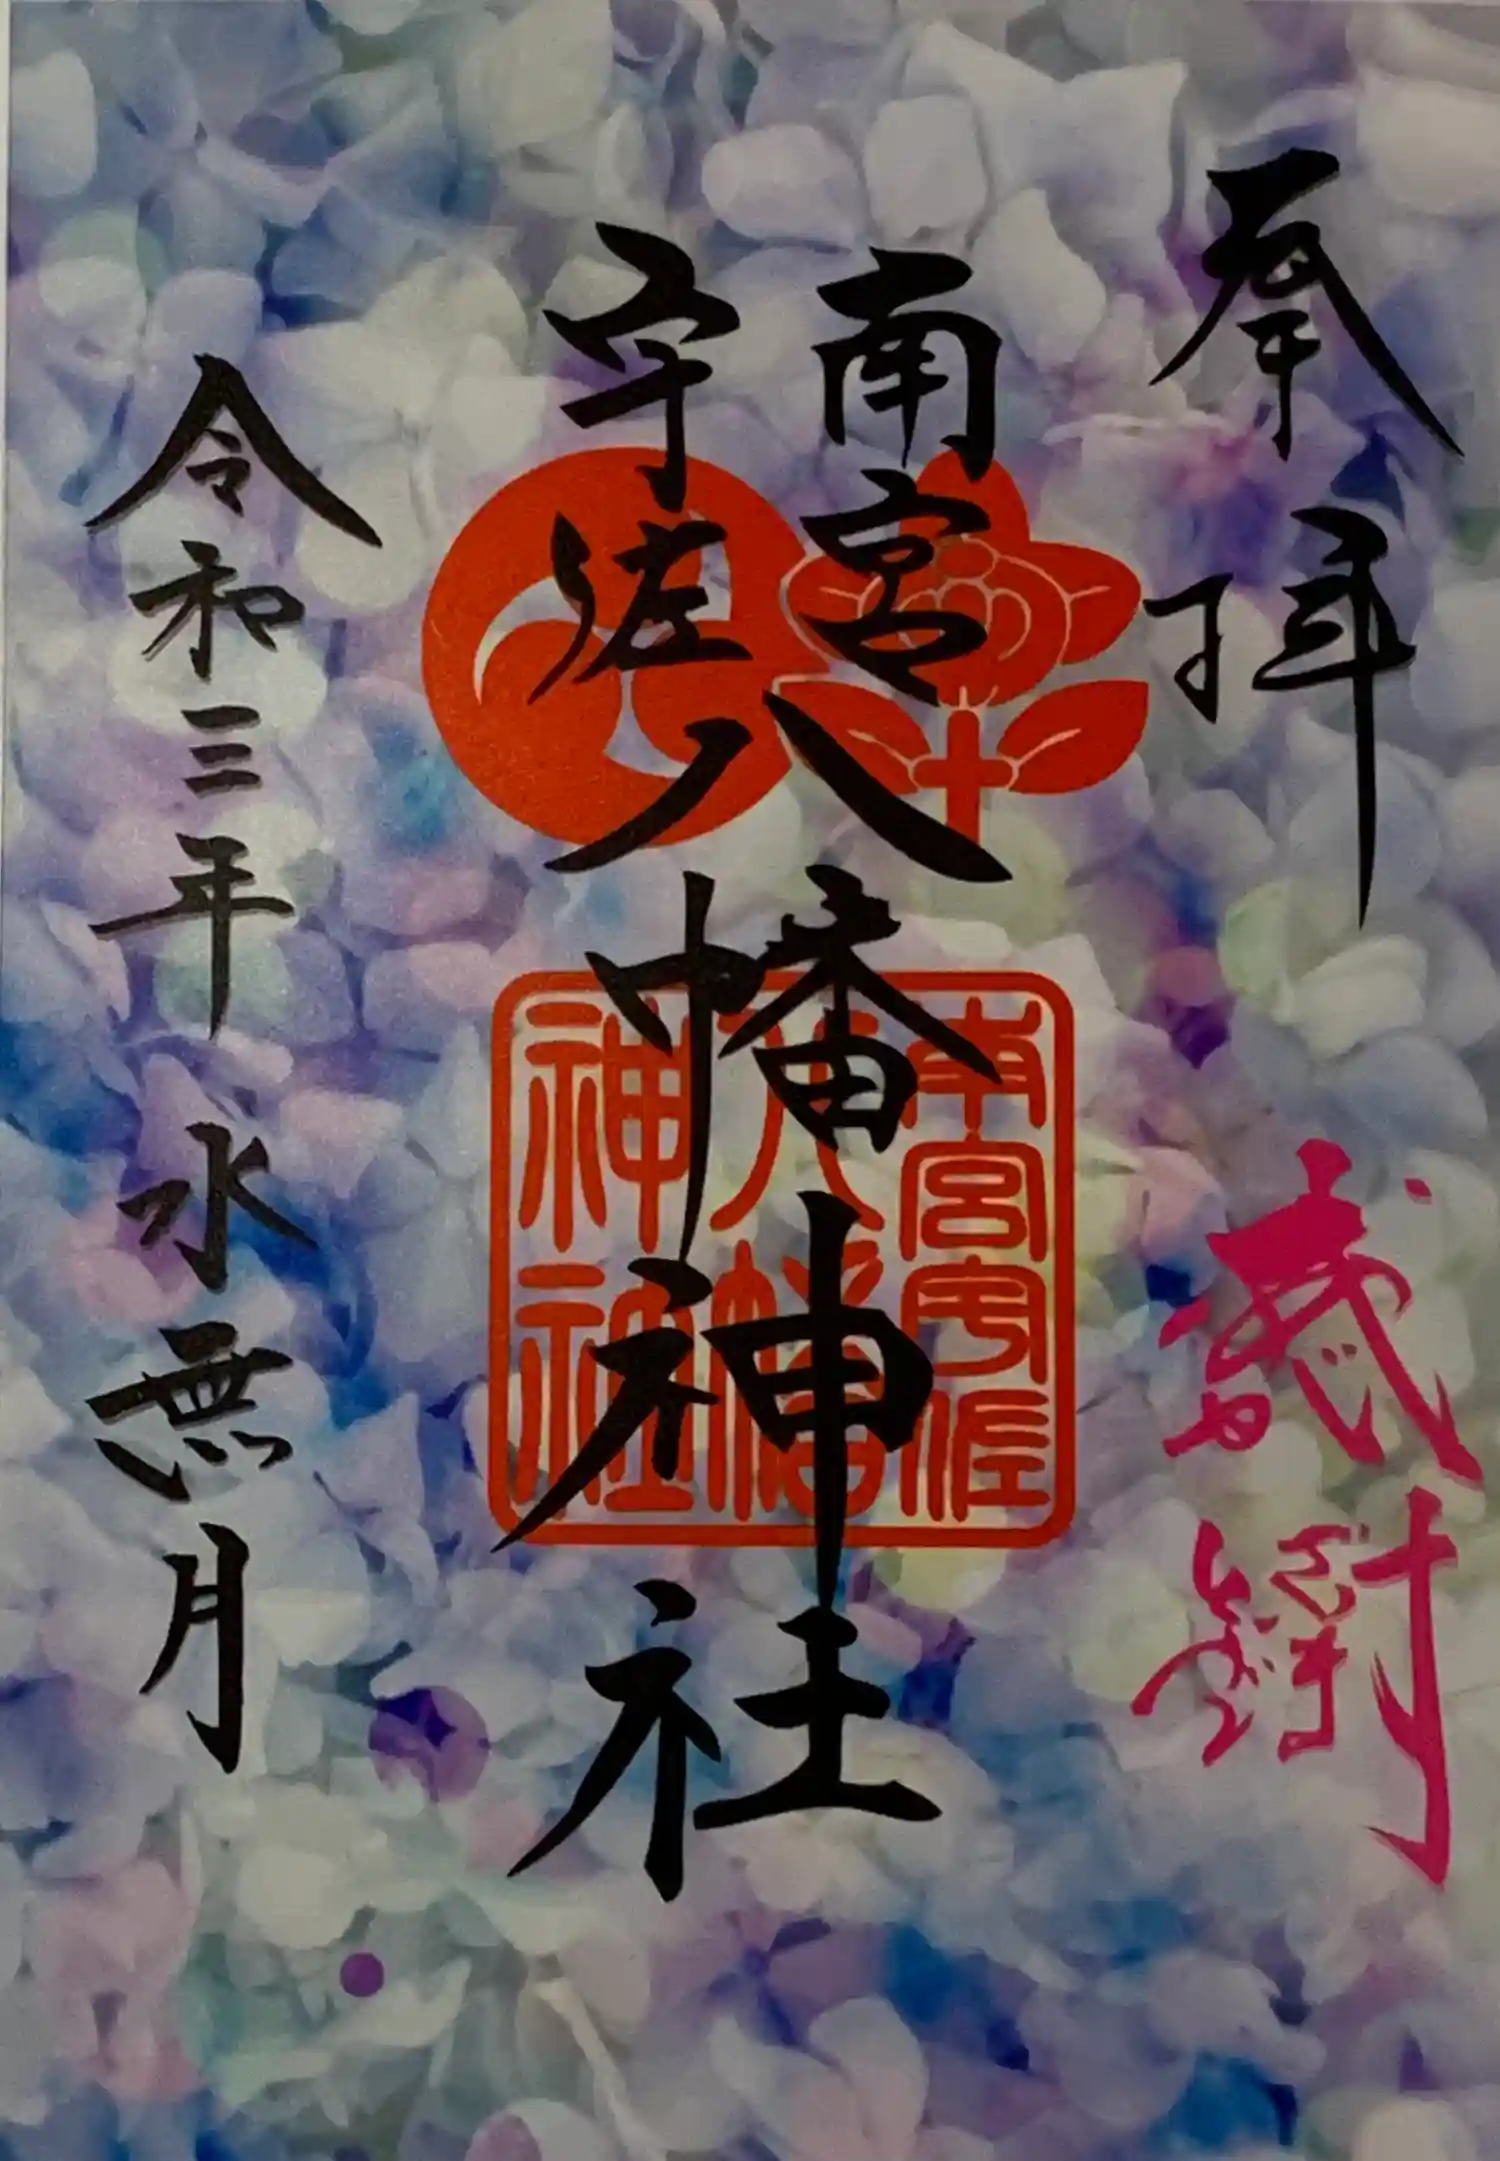 奉拝
南宮
宇佐
八幡神社
南宮宇佐
八幡
神社
令和三年水無月